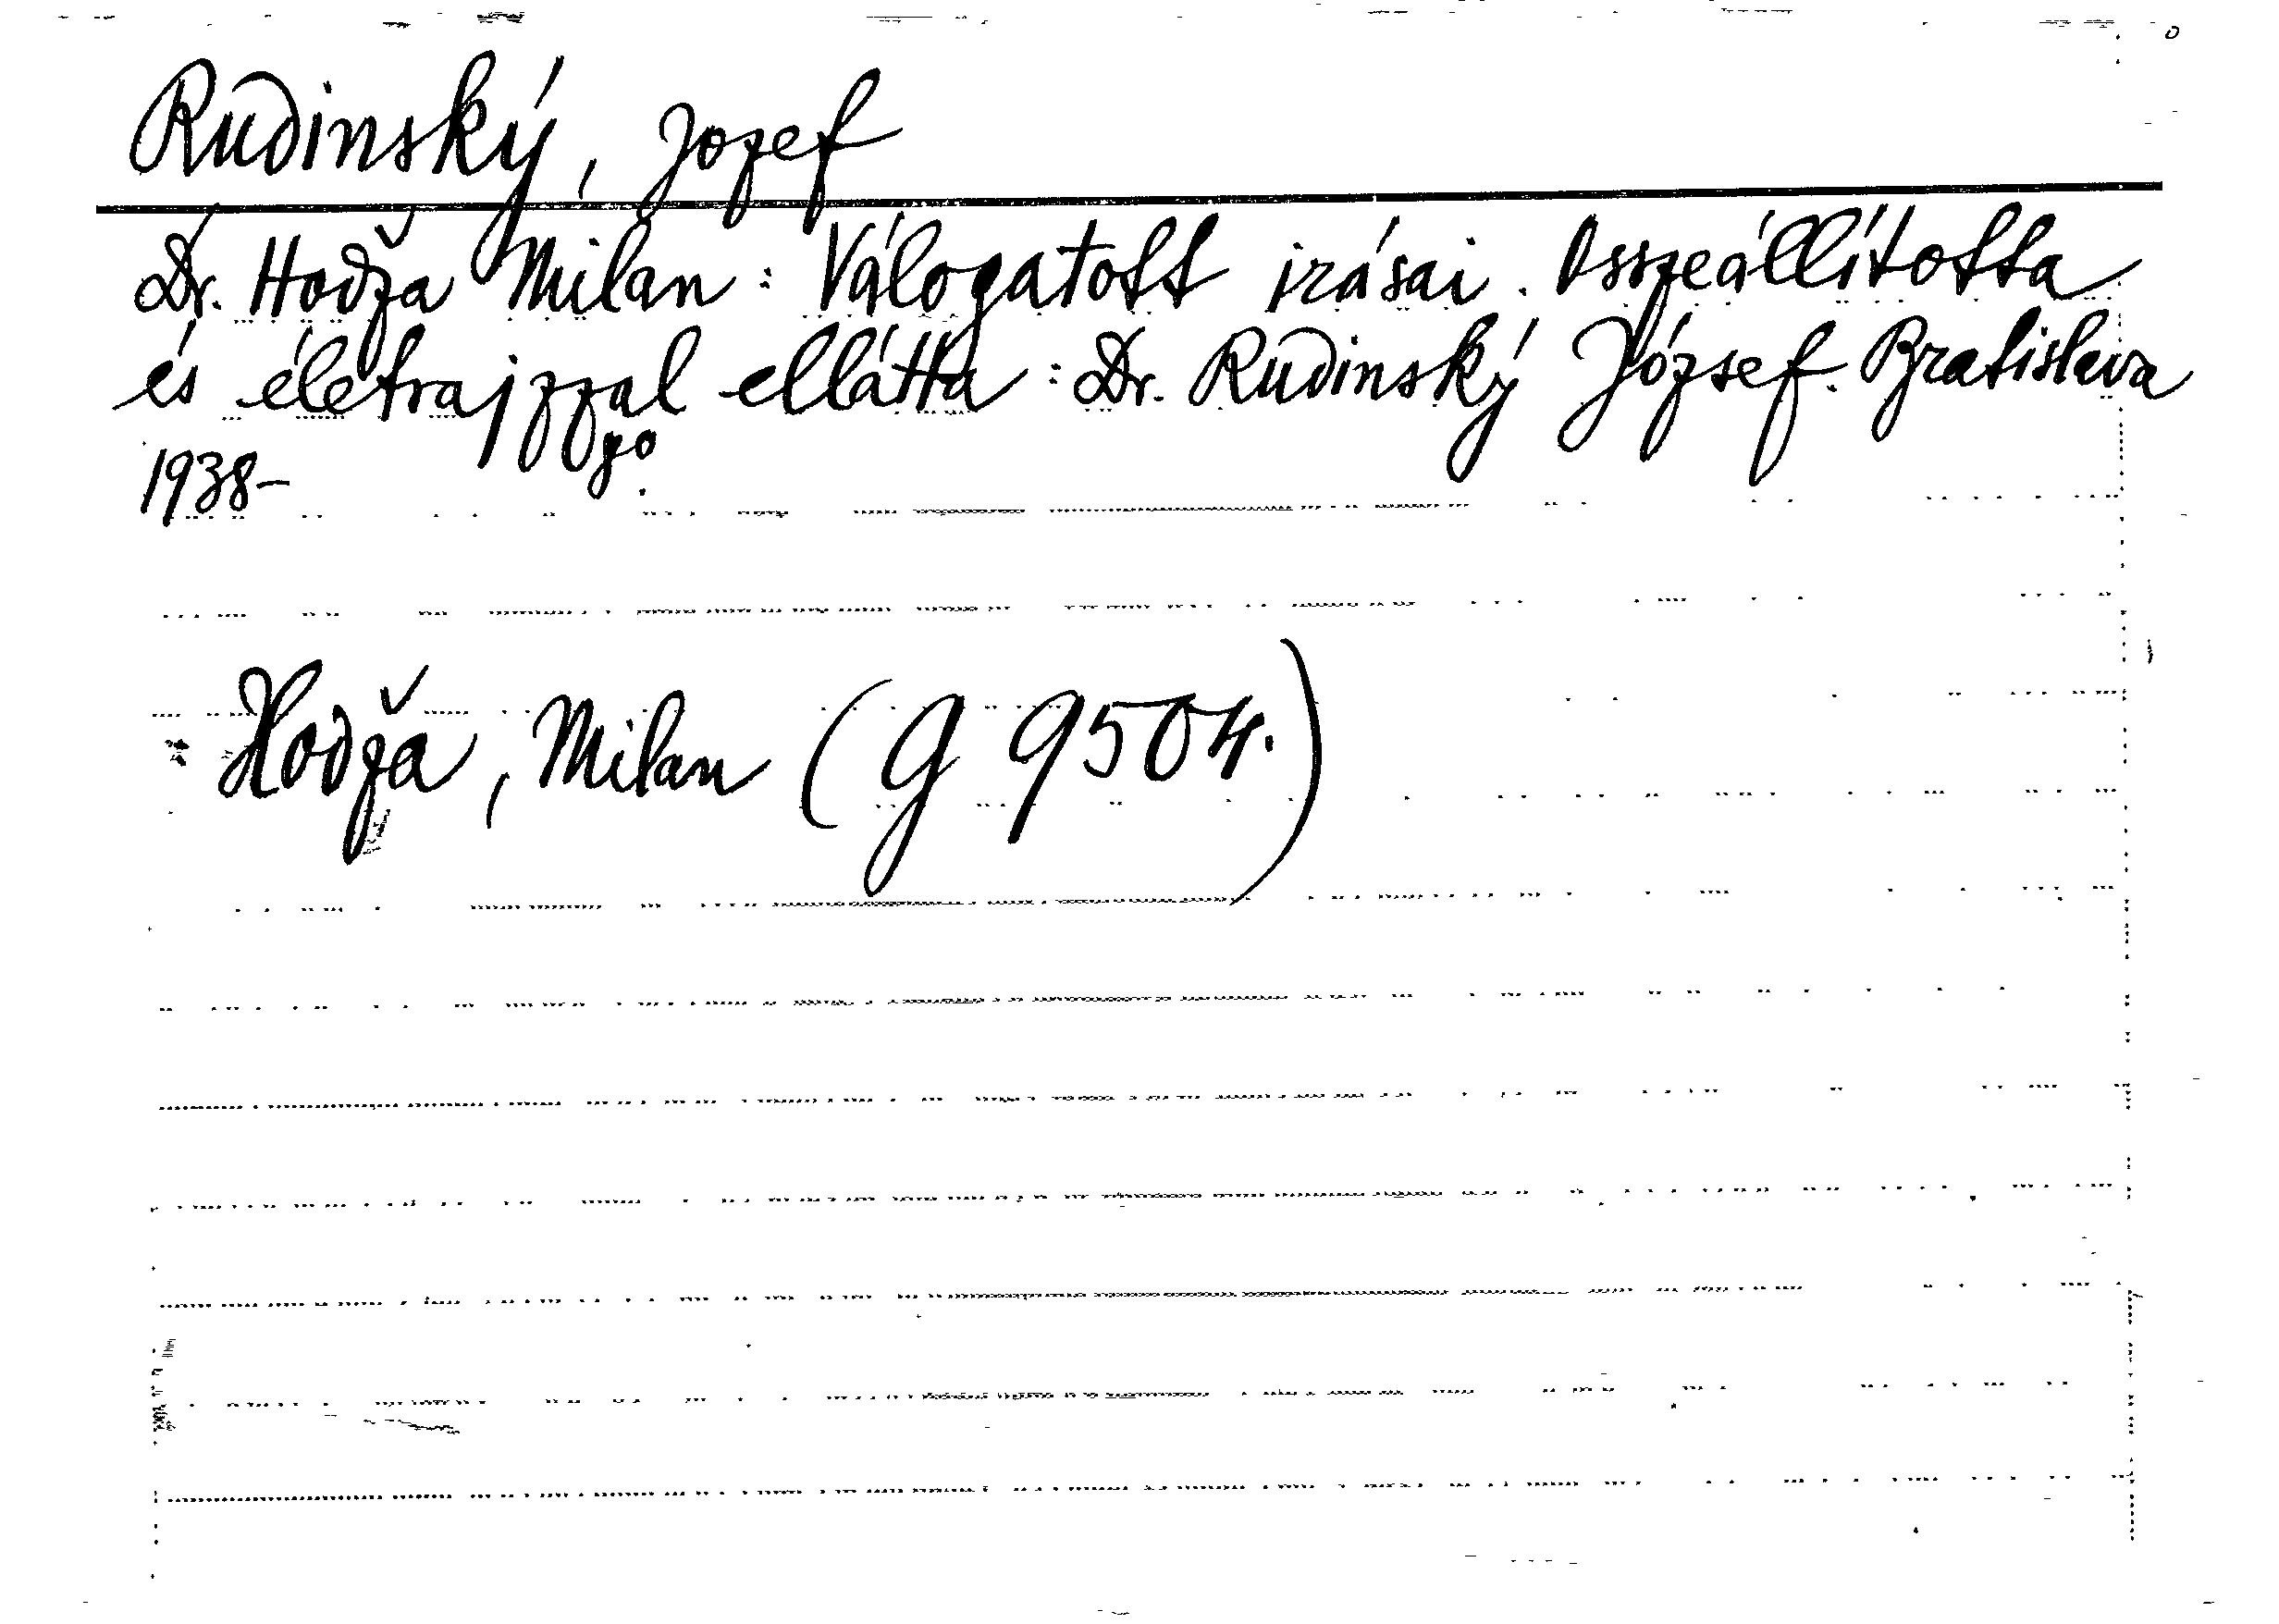 Rudinský, Jozef
Dr. Hodža Milan: Válogatott irásai. Összeállította
és életrajzzal ellátta: Dr. Rudinský József. Bratislava
1938-
Hodža, Milan (G 9504.)